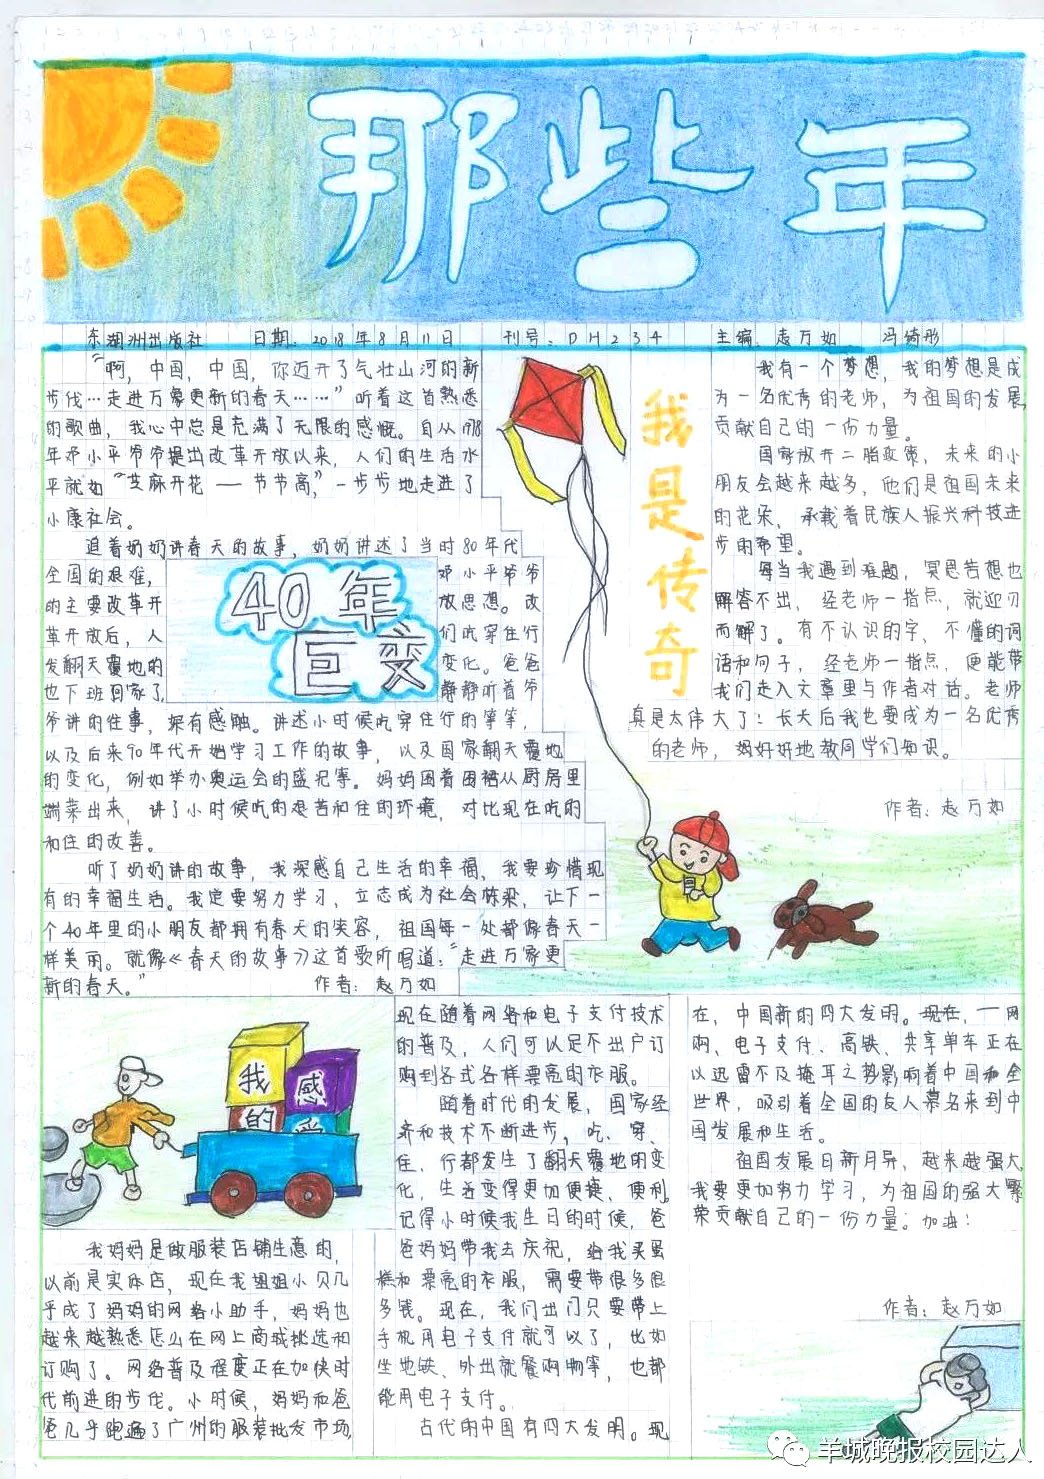 那些年
东湖洲出版社 日期：2018年8月11日 刊号：DH234 主编：赵万如 冯绮彤
“啊，中国，中国，你迈开了气壮山河的新
步伐…走进万象更新的春天……”听着这首熟悉
的歌曲，我心中总是充满了无限的感慨。自从1978
年邓小平爷爷提出改革开放以来，人们的生活水
平就如“芝麻开花——节节高”，一步步地走进了
小康社会。
追着奶奶讲春天的故事，奶奶讲述了当时80年代
全国的艰难，邓小平爷爷
的主要改革开放思想。改
革开放后，人们吃穿住行
发翻天覆地的变化。爸爸
也下班回家了，静静听着爷
爷讲的往事，深有感触。讲述小时候吃穿住行的等等，
以及后来90年代开始学习工作的故事，以及国家翻天覆地
的变化，例如举办奥运会的盛况等。妈妈围着围裙从厨房里
端菜出来，讲了小时候吃的艰苦和住的环境，对比现在吃的
和住的改善。
听了奶奶讲的故事，我深感自己生活的幸福，我要珍惜现
有的幸福生活。我定要努力学习，立志成为社会栋梁，让下一
个40年里的小朋友都拥有春天的笑容，祖国每一处都像春天一
样美丽。就像《春天的故事》这首歌所唱道：“走进万象更
新的春天。” 作者：赵万如
40年
巨变
我是传奇
我有一个梦想，我的梦想是成
为一名优秀的老师，为祖国的发展，
贡献自己的一份力量。
国家放开二胎政策，未来的小
朋友会越来越多，他们是祖国未来
的花朵，承载着民族人振兴科技进
步的希望。
每当我遇到难题，冥思苦想也
解答不出，经老师一指点，就迎刃
而解了。有不认识的字、不懂的词
语和句子，经老师一指点，便能带
我们走入文章里与作者对话。老师
真是太伟大了！长大后我也要成为一名优秀
的老师，好好地教同学们知识。
作者：赵万如
我的感受
我妈妈是做服装店铺生意的，
以前是实体店，现在我姐姐小贝几
乎成了妈妈的网络小助手，妈妈也
越来越熟悉怎么在网上商城挑选和
订购了。网络普及程度正在加快时
代前进的步伐。小时候，妈妈和爸
爸几乎跑遍了广州的服装批发市场，
现在随着网络和电子支付技术
的普及，人们可以足不出户订
购到各式各样漂亮的衣服。
随着时代的发展，国家经
济和技术不断进步，吃、穿、
住、行都发生了翻天覆地的变
化，生活变得更加便捷、便利。
记得小时候我生日的时候，爸
爸妈妈带我去庆祝，给我买蛋
糕和漂亮的衣服，需要带很多很
多钱。现在，我们出门只要带上
手机用电子支付就可以了，比如
坐地铁、外出就餐购物等，也都
能用电子支付。
古代的中国有四大发明。现
在，中国新的四大发明。现在，一网
购、电子支付、高铁、共享单车正在
以迅雷不及掩耳之势影响着中国和全
世界，吸引着全国的友人慕名来到中
国发展和生活。
祖国发展日新月异，越来越强大，
我要更加努力学习，为祖国的强大繁
荣贡献自己的一份力量：加油！
作者：赵万如
羊城晚报校园达人